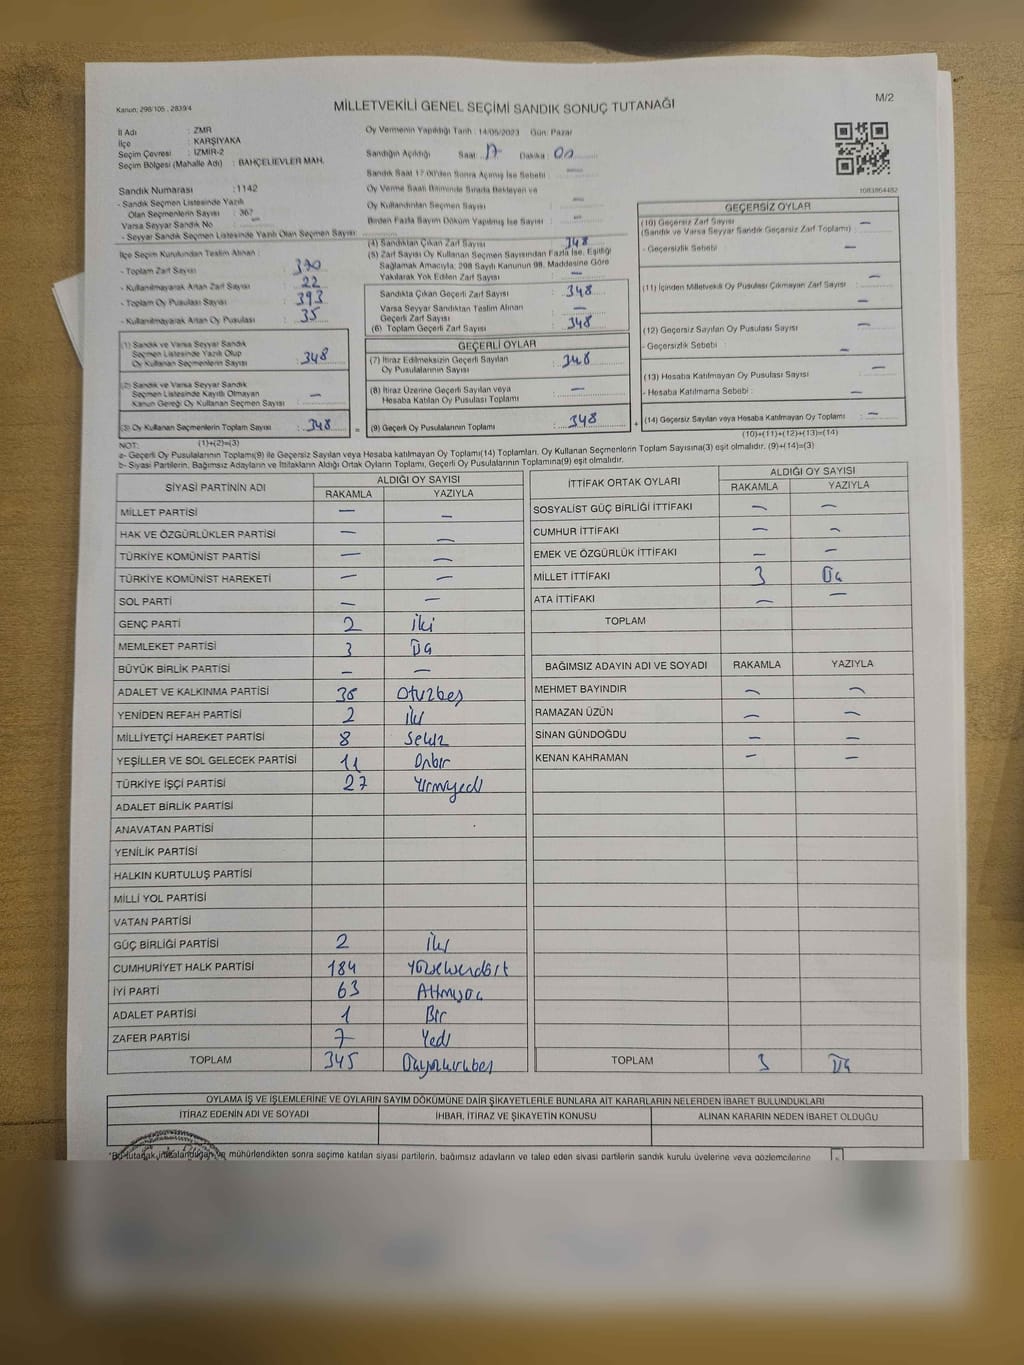 Kanun: 298/105 , 2839/4
MİLLETVEKİLİ GENEL SEÇİMİ SANDIK SONUÇ TUTANAĞI
M/2
İl Adı : ZMR
İlçe : KARŞIYAKA
Seçim Çevresi : IZMIR-2
Seçim Bölgesi (Mahalle Adı) : BAHÇELIEVLER MAH.
Oy Vermenin Yapıldığı Tarih : 14/05/2023 Gün: Pazar
Sandığın Açıldığı Saat : 17 Dakika : 00
Sandık Saat 17:00'den Sonra Açılmış İse Sebebi : —
Oy Verme Saati Bitiminde Sırada Bekleyen ve
Oy Kullandırılan Seçmen Sayısı : —
Birden Fazla Sayım Döküm Yapılmış İse Sayısı : —
1083864482
Sandık Numarası : 1142
- Sandık Seçmen Listesinde Yazılı
Olan Seçmenlerin Sayısı : 367
Varsa Seyyar Sandık No : —
- Seyyar Sandık Seçmen Listesinde Yazılı Olan Seçmen Sayısı :
İlçe Seçim Kurulundan Teslim Alınan :
- Toplam Zarf Sayısı : 370
- Kullanılmayarak Artan Zarf Sayısı : 22
- Toplam Oy Pusulası Sayısı : 393
- Kullanılmayarak Artan Oy Pusulası : 35
(1) Sandık ve Varsa Seyyar Sandık
Seçmen Listesinde Yazılı Olup
Oy Kullanan Seçmenlerin Sayısı : 348
(2) Sandık ve Varsa Seyyar Sandık
Seçmen Listesinde Kayıtlı Olmayan
Kanun Gereği Oy Kullanan Seçmen Sayısı : —
(3) Oy Kullanan Seçmenlerin Toplam Sayısı : 348
(1)+(2)=(3)
(4) Sandıktan Çıkan Zarf Sayısı : 348
(5) Zarf Sayısı Oy Kullanan Seçmen Sayısından Fazla İse, Eşitliği
Sağlamak Amacıyla, 298 Sayılı Kanunun 98. Maddesine Göre
Yakılarak Yok Edilen Zarf Sayısı : —
Sandıkta Çıkan Geçerli Zarf Sayısı : 348
Varsa Seyyar Sandıktan Teslim Alınan
Geçerli Zarf Sayısı : —
(6) Toplam Geçerli Zarf Sayısı : 348
GEÇERLİ OYLAR
(7) İtiraz Edilmeksizin Geçerli Sayılan
Oy Pusulalarının Sayısı : 348
(8) İtiraz Üzerine Geçerli Sayılan veya
Hesaba Katılan Oy Pusulası Toplamı : —
= (9) Geçerli Oy Pusulalarının Toplamı : 348 +
GEÇERSİZ OYLAR
(10) Geçersiz Zarf Sayısı : —
(Sandık ve Varsa Seyyar Sandık Geçersiz Zarf Toplamı)
- Geçersizlik Sebebi : —
(11) İçinden Milletvekili Oy Pusulası Çıkmayan Zarf Sayısı : —
(12) Geçersiz Sayılan Oy Pusulası Sayısı : —
- Geçersizlik Sebebi : —
(13) Hesaba Katılmayan Oy Pusulası Sayısı : —
- Hesaba Katılmama Sebebi : —
(14) Geçersiz Sayılan veya Hesaba Katılmayan Oy Toplamı : —
(10)+(11)+(12)+(13)=(14)
NOT:
a- Geçerli Oy Pusulalarının Toplamı(9) ile Geçersiz Sayılan veya Hesaba katılmayan Oy Toplamı(14) Toplamları, Oy Kullanan Seçmenlerin Toplam Sayısına(3) eşit olmalıdır. (9)+(14)=(3)
b- Siyasi Partilerin, Bağımsız Adayların ve İttifakların Aldığı Ortak Oyların Toplamı, Geçerli Oy Pusulalarının Toplamına(9) eşit olmalıdır.
SİYASİ PARTİNİN ADI ALDIĞI OY SAYISI
RAKAMLA YAZIYLA
MİLLET PARTİSİ — —
HAK VE ÖZGÜRLÜKLER PARTİSİ — —
TÜRKİYE KOMÜNİST PARTİSİ — —
TÜRKİYE KOMÜNİST HAREKETİ — —
SOL PARTİ — —
GENÇ PARTİ 2 iki
MEMLEKET PARTİSİ 3 Üç
BÜYÜK BİRLİK PARTİSİ — —
ADALET VE KALKINMA PARTİSİ 35 Otuzbeş
YENİDEN REFAH PARTİSİ 2 iki
MİLLİYETÇİ HAREKET PARTİSİ 8 Sekiz
YEŞİLLER VE SOL GELECEK PARTİSİ 11 Onbir
TÜRKİYE İŞÇİ PARTİSİ 27 Yirmiyedi
ADALET BİRLİK PARTİSİ
ANAVATAN PARTİSİ
YENİLİK PARTİSİ
HALKIN KURTULUŞ PARTİSİ
MİLLİ YOL PARTİSİ
VATAN PARTİSİ
GÜÇ BİRLİĞİ PARTİSİ 2 iki
CUMHURİYET HALK PARTİSİ 184 Yüzseksendört
İYİ PARTİ 63 Altmışüç
ADALET PARTİSİ 1 Bir
ZAFER PARTİSİ 7 Yedi
TOPLAM 345 Üçyüzkırkbeş
İTTİFAK ORTAK OYLARI ALDIĞI OY SAYISI
RAKAMLA YAZIYLA
SOSYALİST GÜÇ BİRLİĞİ İTTİFAKI — —
CUMHUR İTTİFAKI — —
EMEK VE ÖZGÜRLÜK İTTİFAKI — —
MİLLET İTTİFAKI 3 Üç
ATA İTTİFAKI — —
TOPLAM
BAĞIMSIZ ADAYIN ADI VE SOYADI RAKAMLA YAZIYLA
MEHMET BAYINDIR — —
RAMAZAN ÜZÜN — —
SİNAN GÜNDOĞDU — —
KENAN KAHRAMAN — —
TOPLAM 3 Üç
OYLAMA İŞ VE İŞLEMLERİNE VE OYLARIN SAYIM DÖKÜMÜNE DAİR ŞİKAYETLERLE BUNLARA AİT KARARLARIN NELERDEN İBARET BULUNDUKLARI
İTİRAZ EDENİN ADI VE SOYADI İHBAR, İTİRAZ VE ŞİKAYETİN KONUSU ALINAN KARARIN NEDEN İBARET OLDUĞU
mühürlendikten sonra seçime katılan siyasi partilerin, bağımsız adayların ve talep eden siyasi partilerin sandık kurulu üyelerine veya gözlemcilerine